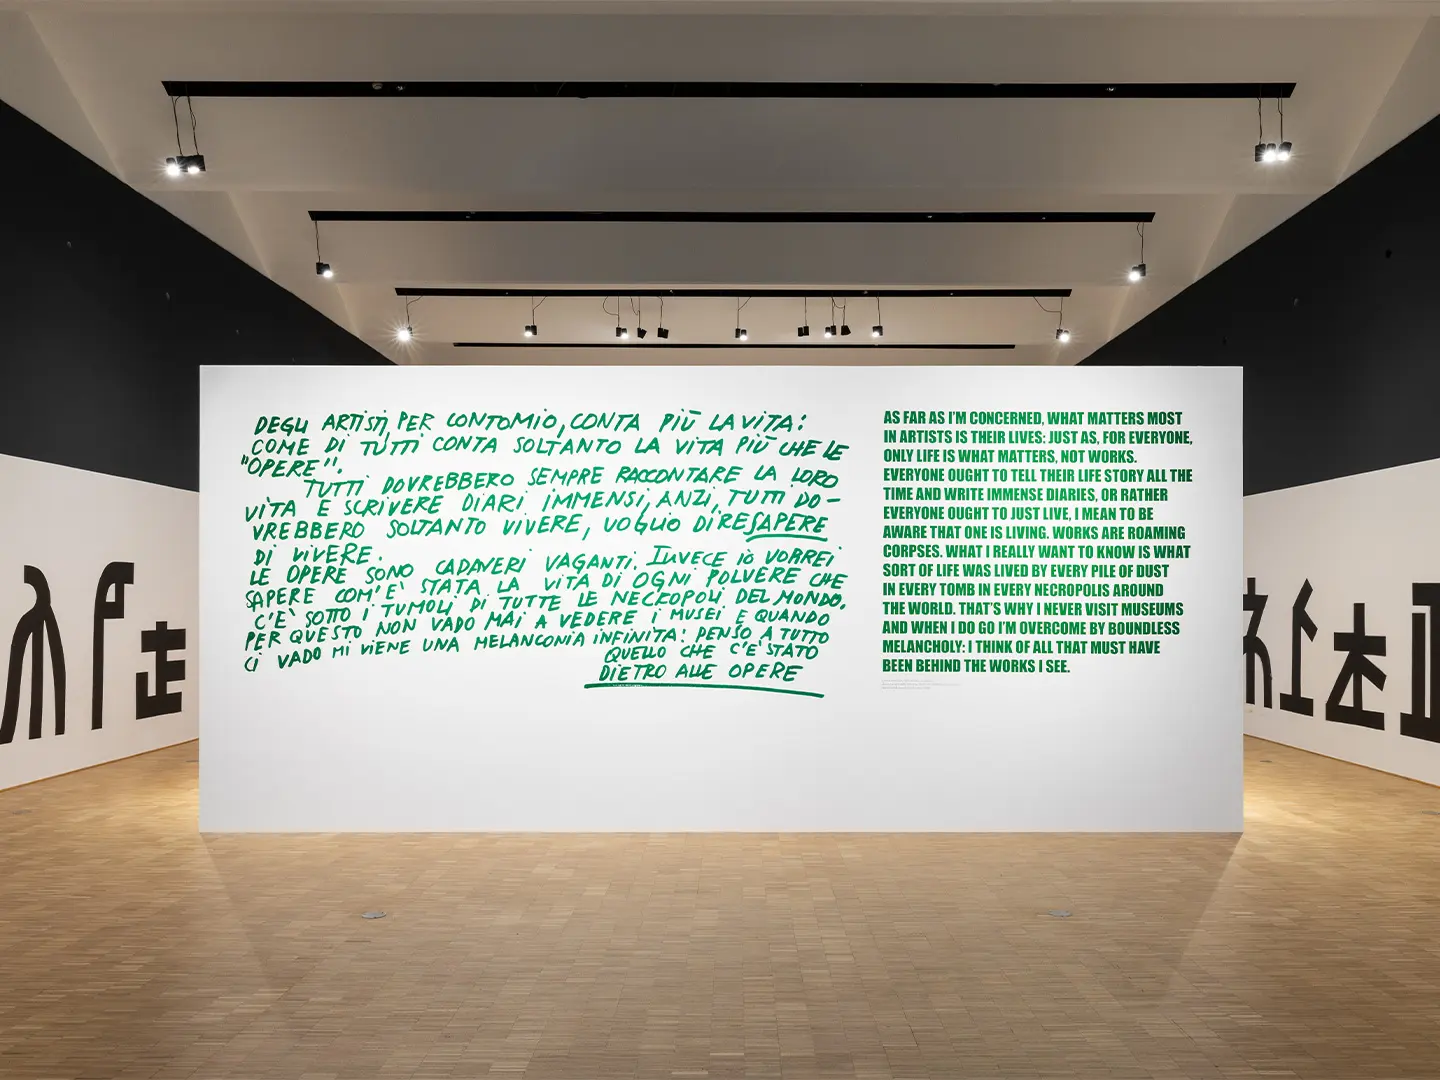 DEGLI ARTISTI, PER CONTO MIO, CONTA PIÙ LA VITA:
COME DI TUTTI CONTA SOLTANTO LA VITA PIÙ CHE LE
"OPERE".
TUTTI DOVREBBERO SEMPRE RACCONTARE LA LORO
VITA E SCRIVERE DIARI IMMENSI, ANZI, TUTTI DO-
VREBBERO SOLTANTO VIVERE, VOGLIO DIRE SAPERE
DI VIVERE.
LE OPERE SONO CADAVERI VAGANTI. INVECE IO VORREI
SAPERE COM'E' STATA LA VITA DI OGNI POLVERE CHE
C'E' SOTTO I TUMOLI DI TUTTE LE NECROPOLI DEL MONDO.
PER QUESTO NON VADO MAI A VEDERE I MUSEI E QUANDO
CI VADO MI VIENE UNA MELANCONIA INFINITA: PENSO A TUTTO
QUELLO CHE C'E' STATO
DIETRO ALLE OPERE
AS FAR AS I'M CONCERNED, WHAT MATTERS MOST
IN ARTISTS IS THEIR LIVES: JUST AS, FOR EVERYONE,
ONLY LIFE IS WHAT MATTERS, NOT WORKS.
EVERYONE OUGHT TO TELL THEIR LIFE STORY ALL THE
TIME AND WRITE IMMENSE DIARIES, OR RATHER
EVERYONE OUGHT TO JUST LIVE, I MEAN TO BE
AWARE THAT ONE IS LIVING. WORKS ARE ROAMING
CORPSES. WHAT I REALLY WANT TO KNOW IS WHAT
SORT OF LIFE WAS LIVED BY EVERY PILE OF DUST
IN EVERY TOMB IN EVERY NECROPOLIS AROUND
THE WORLD. THAT'S WHY I NEVER VISIT MUSEUMS
AND WHEN I DO GO I'M OVERCOME BY BOUNDLESS
MELANCHOLY: I THINK OF ALL THAT MUST HAVE
BEEN BEHIND THE WORKS I SEE.